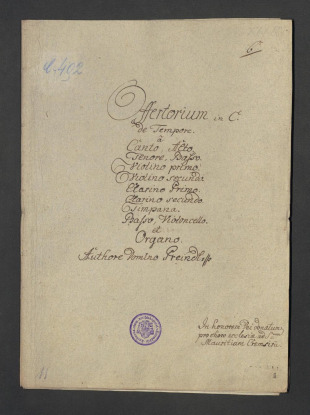 6.
A.402
Offertorium in C.
de Tempore.
à
Canto, Alto,
Tenore, Basso.
Violino primo.
Violino secundo
Clarino Primo.
Clarino secundo.
Timpana.
Basso, Violoncello.
et
Organo.
Authore Domino Preindl
In honorem Dei donatum
pro choro ecclesiae ad S.
Mauritium Cremsirii